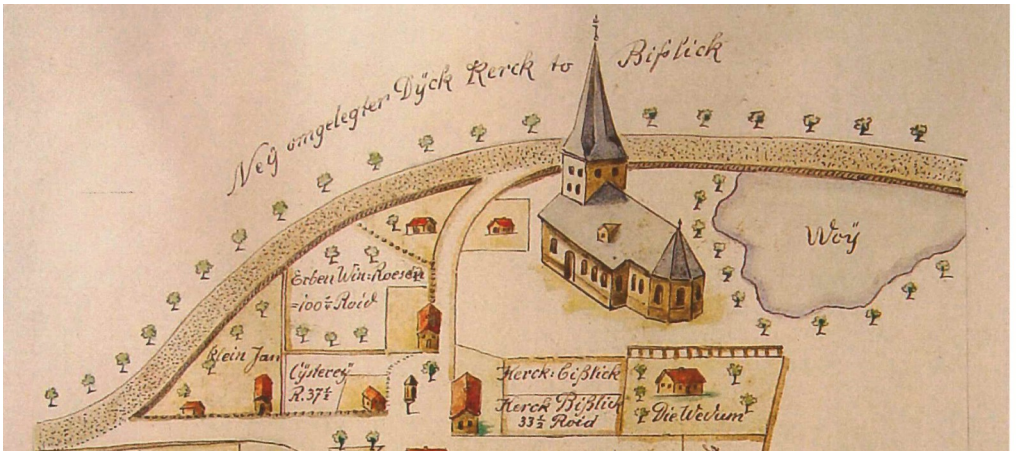 Neÿ omgelegter Dÿck Kerck to Bißlick
Woÿ
Erben Win: Roesen
=100 Roid
Klein Jan
Cÿsterey
R. 37½
Kerck: Bißlick
Kerck Bißlick
33½ Roid
Die Wedum